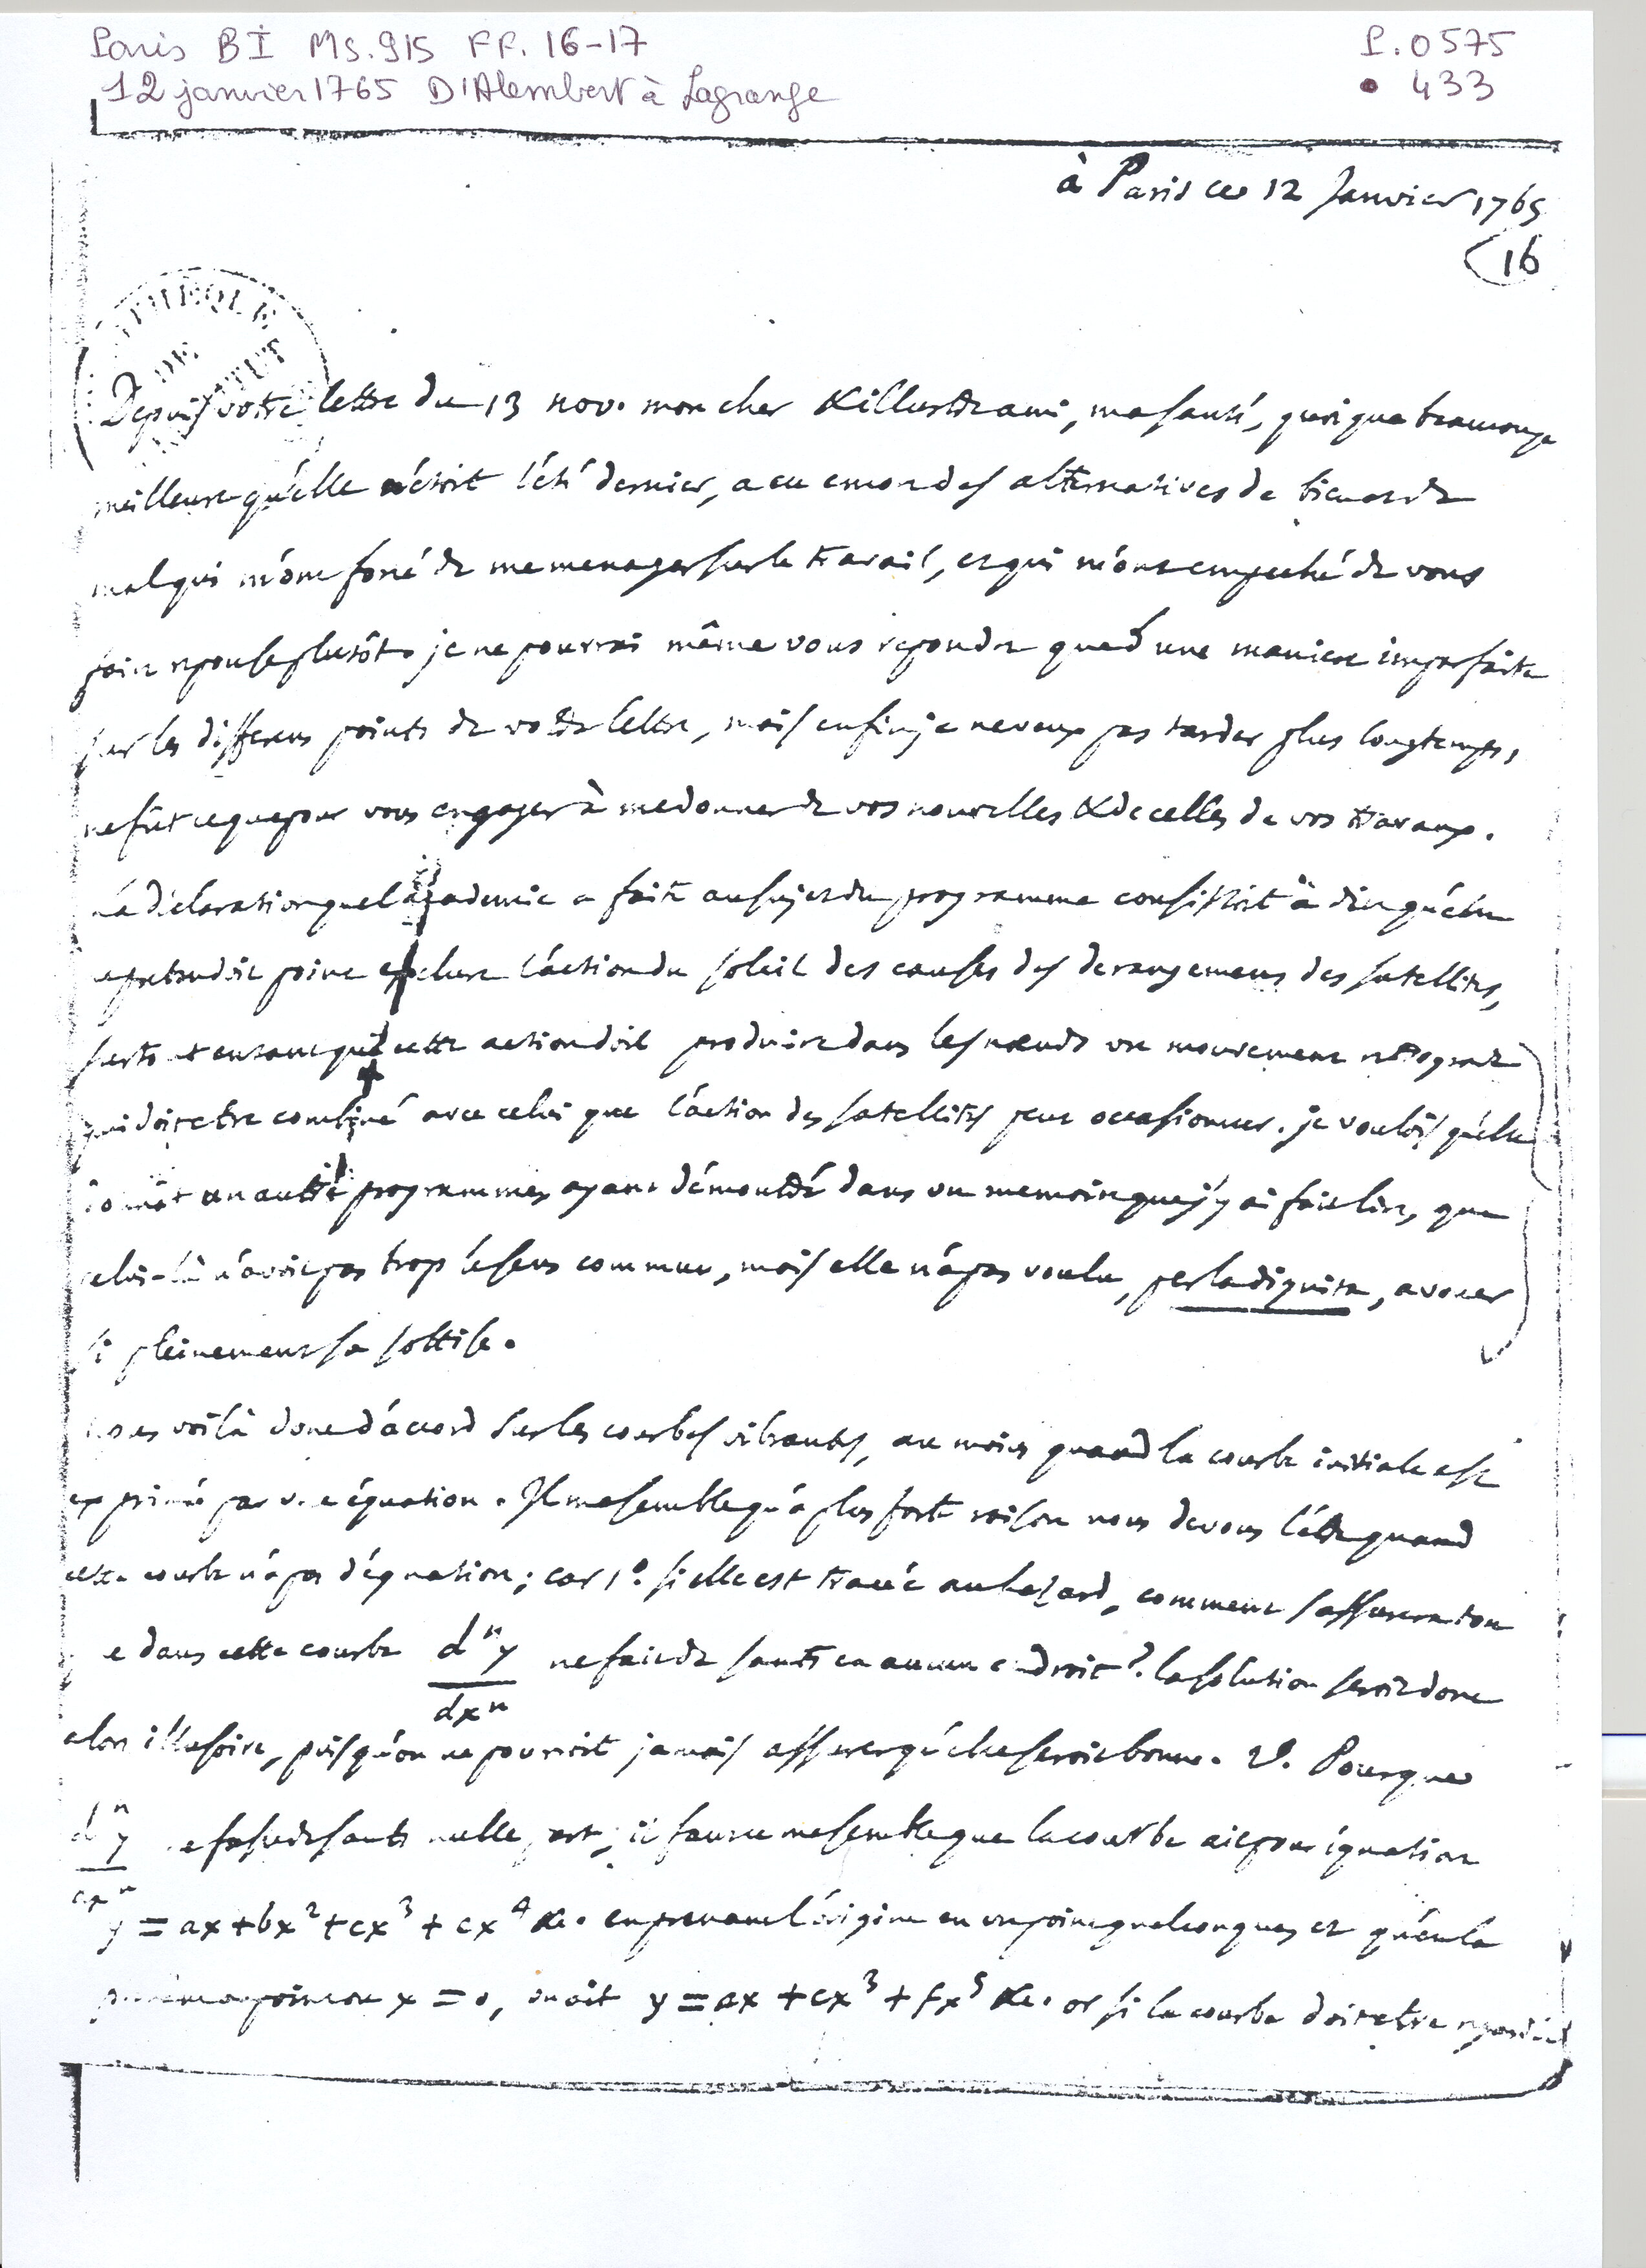 Paris BI MS. 915 FF. 16-17
P. 0575
12 janvier 1765 D'Alembert à Lagrange
• 433
à Paris ce 12 Janvier 1765
(16
THEQUE
DE
Depuis votre lettre du 13 nov. mon cher & illustre ami, ma santé, quoique beaucoup
meilleure qu'elle n'étoit l'été dernier, a eu encor des alternatives de bien et de
mal qui m'ont forcé de me menager sur le travail, et qui m'ont empeché de vous
faire reponse plutôt. je ne pourrai même vous repondre que d'une maniere imparfaite
sur les differens points de votre lettre, mais enfin je ne veux pas tarder plus longtemps,
ne fût ce que pour vous engager à me donner de vos nouvelles & de celles de vos travaux.
La déclaration que l'academie a faite au sujet du programme consistoit à dire qu'elle
pretendoit point exclure l'action du soleil des causes des derangemens des satellites,
surtout en tant que cette action doit produire dans les nœuds un mouvement retrograde
qui doit etre combiné avec celui que l'action des satellites peut occasionner. je voulois qu'elle
un autre programme, ayant démontré dans un memoire que j'y ai fait lire, que
celui-là n'avoit pas trop le sens commun, mais elle n'a pas voulu, per la dignita, avouer
si pleinement sa sottise.
nous voilà donc d'accord sur les courbes vibrantes, au moins quand la courbe initiale est
exprimée par une équation. Il me semble qu'à plus forte raison nous devons l'être quand
cette courbe n'a pas d'équation; car 1°. si elle est tracée au hazard, comment s'assurera t'on
e dans cette courbe d^n y / dx^n ne fait de sauts en aucun endroit? la solution seroit donc
alors illusoire, puisqu'on ne pourroit jamais assurer qu'elle seroit bonne. 2°. Pour que
d^n y / dx^n ne fasse de sauts nulle part, il faut ce me semble que la courbe ait pour équation
y = ax + bx² + cx³ + cx⁴ &c. en prenant l'origine en un point quelconque, et qu'en la
point ou x = 0, on ait y = ax + cx³ + fx⁵ &c. or si la courbe doit etre